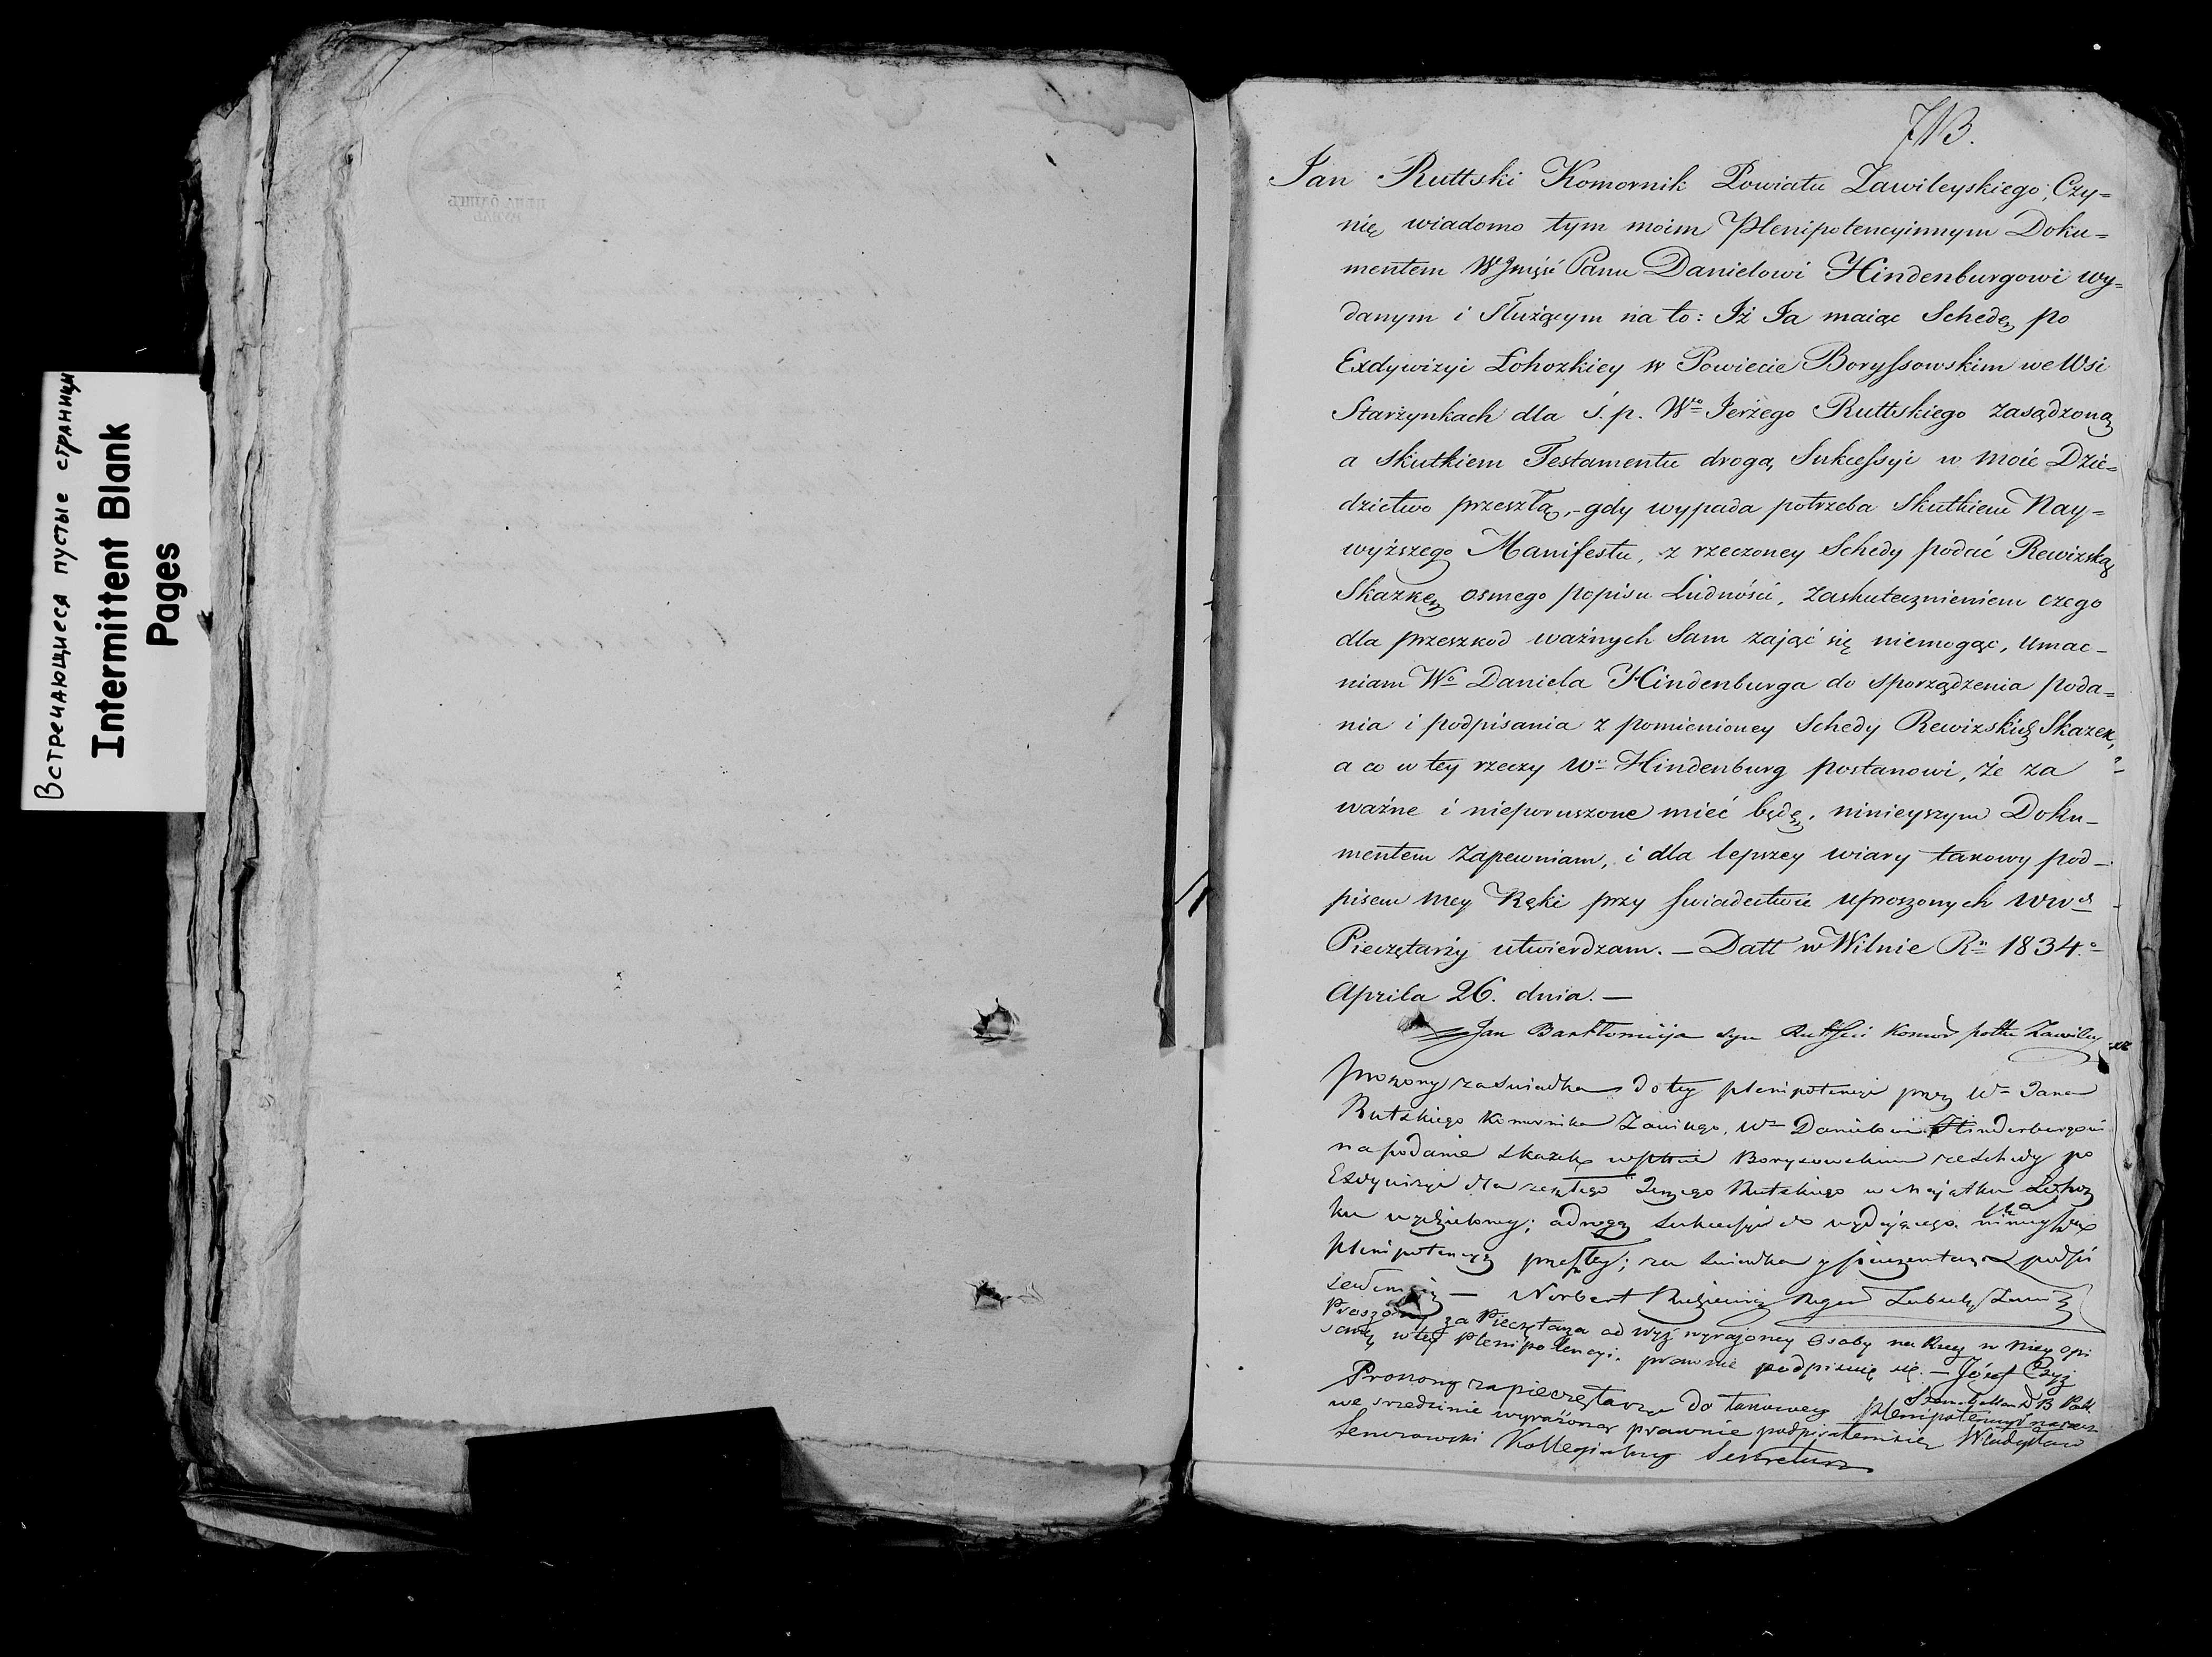 Встречающиеся пустые страницы
Intermittent Blank
Pages
713.
Jan Ruttski Komornik Powiatu Zawileyskiego, Czy=
nię wiadomo tym moim Plenipotencyinnym Doku=
mentem WJmść Panu Danielowi Hindenburgowi wy=
danym i Służącym na to: Iż Ja maiąc Schedę po
Exdywizyi Łohozkiey w Powiecie Boryssowskim we Wsi
Starzynkach dla ś. p. Wo Jerzego Ruttskiego zasądzoną
a skutkiem Testamentu drogą Sukcessyi w moie Dzie=
dzictwo przeszłą, - gdy wypada potrzeba skutkiem Nay=
wyższego Manifestu, z rzeczoney Schedy podać Rewizską
Skazkę osmego popisu Ludności, zaskutecznieniem czego
dla przeszkod ważnych Sam zająć się niemogąc, umac-
niam Wo Daniela Hindenburga do sporządzenia poda=
nia i podpisania z pomienioney Schedy Rewizskich Skazek,
a co w tey rzeczy W Hindenburg postanowi, że za
ważne i nieporuszone mieć będę, ninieyszym Doku-
mentem zapewniam, i dla lepszey wiary takowy pod-
pisem mey Ręki przy świadectwie uproszonych WW
Pieczętarzy utwierdzam. - Datt w Wilnie Rn 1834o
Aprila 26. dnia. -
Jan Bartłomieja syn Rutski Komor pottu Zawiley
Proszony za świadka do tey plenipotencyi przez W Jana
Rutskiego Komornika Zawilego, W Danielowi Hinderburgowi
na podanie skazki w pttcie Borysowskim ze schedy po
Exdywizyi dla zeszłego Jerzego Rutskiego w majątku Łohoz
ku wydzieloney; a drogą sukcessyi do wydającego
plenipotencyą przeszłey; za świadka y pieczentarza podpi
sałem się - Norbert
Proszony za Pieczętarza od wyż wyrażoney Osoby na rzecz w niey opi
saną w tey Plenipotencyi. prawnie podpisuię się. - Józef Czyż
Proszony za pieczętarza do takowey Plenipotencyi na rzecz
we srzedzinie wyrażoną prawnie podpisałem się Władysław
Kollegialny Sekretarz